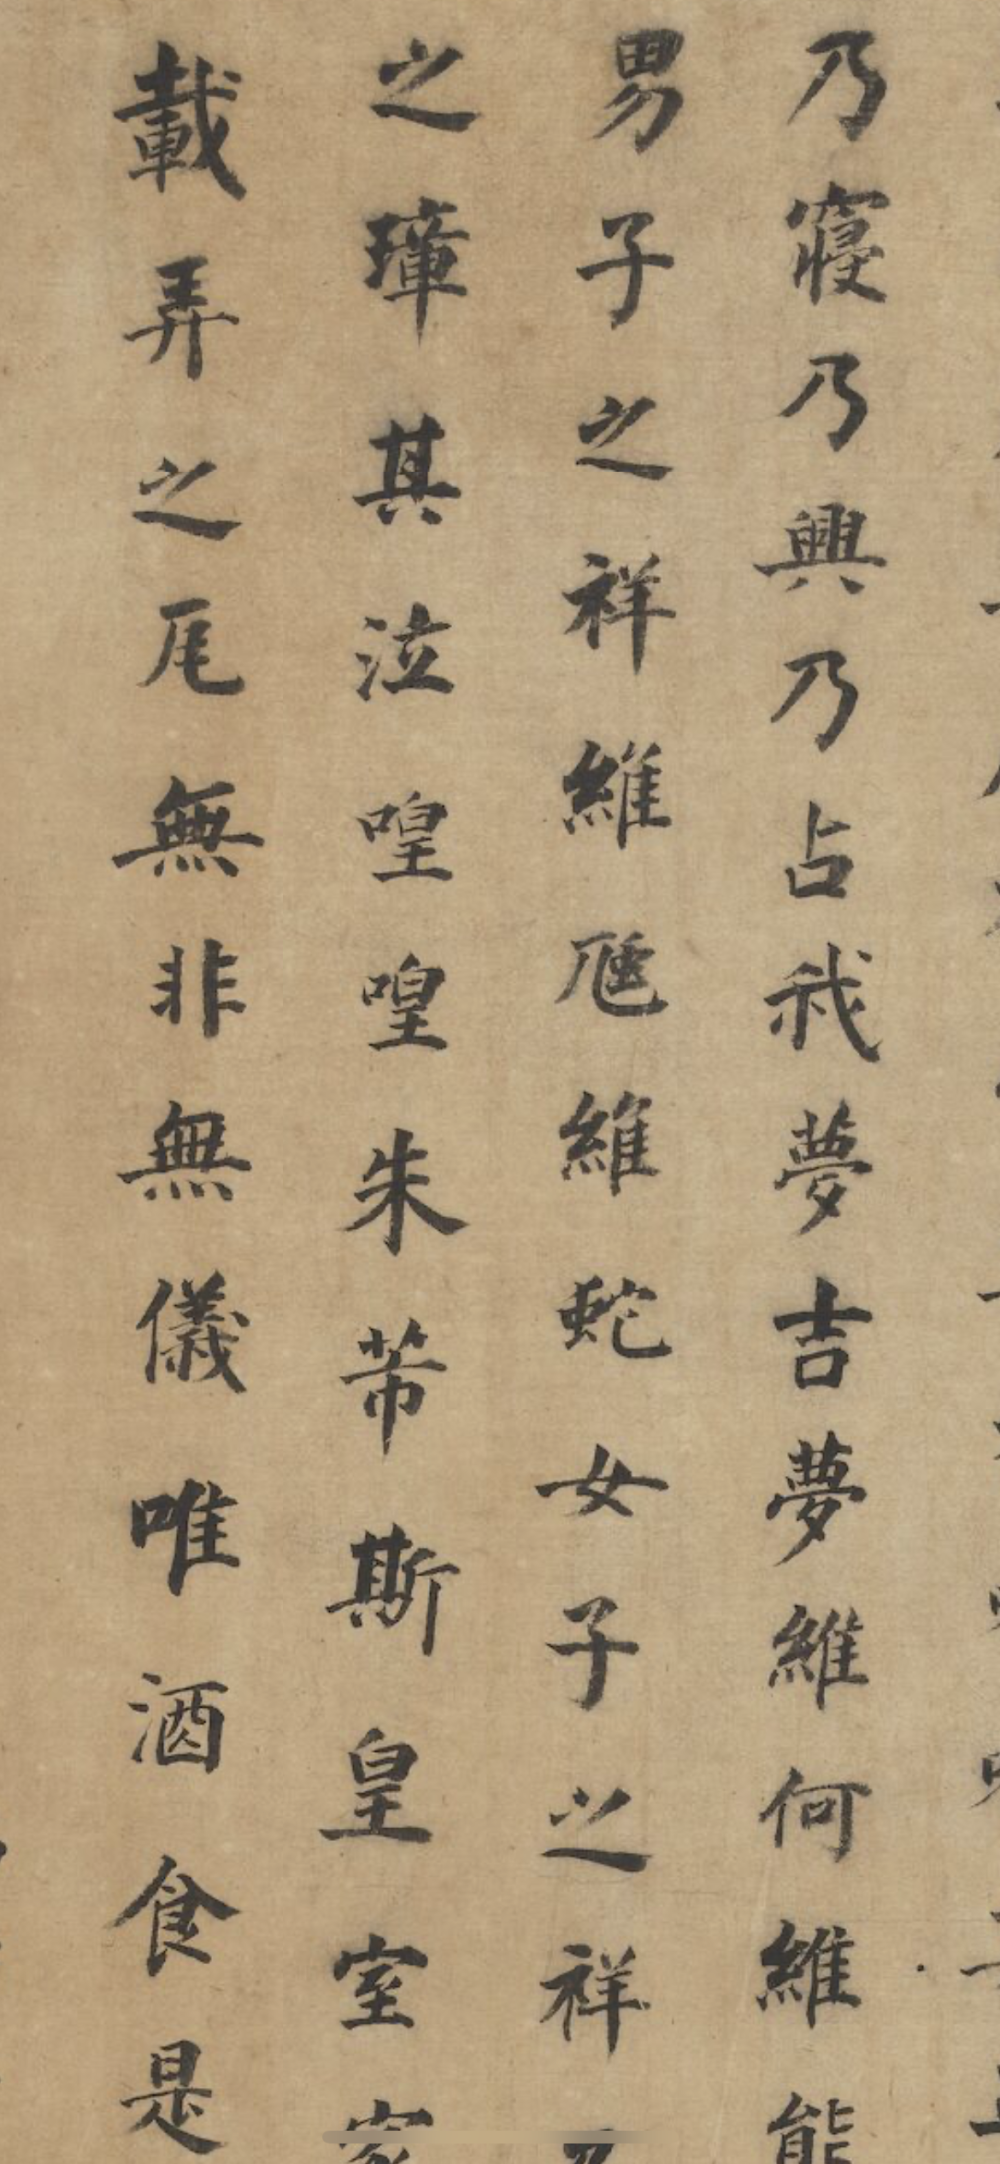 乃寢乃興乃占我夢吉夢維何維熊
男子之祥維虺維蛇女子之祥
之璋其泣喤喤朱芾斯皇室家
載弄之瓦無非無儀唯酒食是